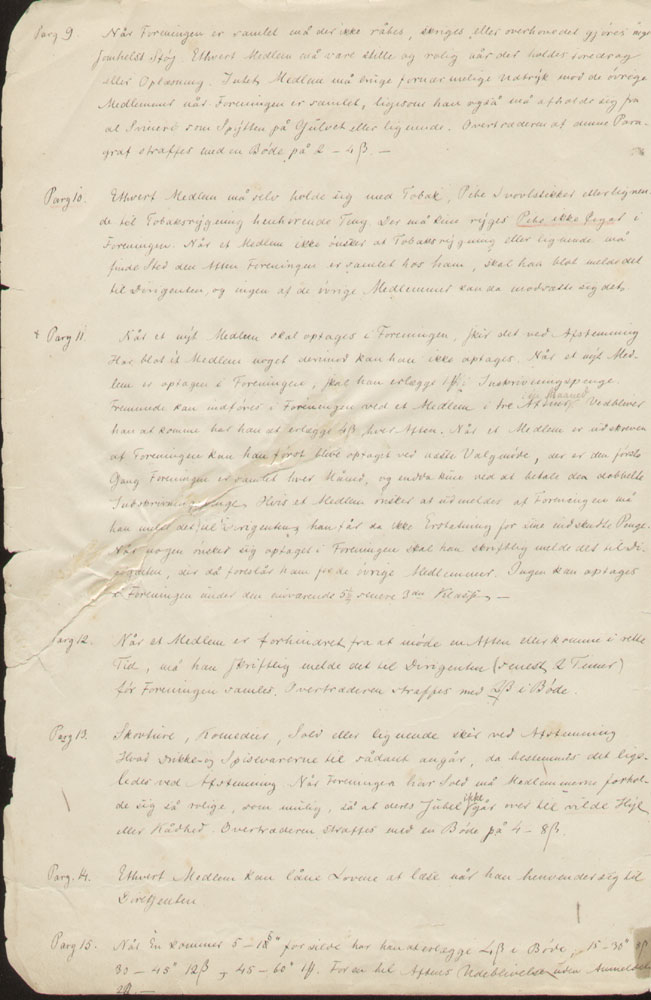 Parg 9. Når Foreningen er samlet må der ikke råbes, synges, eller overhovedet gjöres noget
somhelst Stöj. Ethvert Medlem må være stille og rolig når der holdes Foredrag
eller Oplæsning. Intet Medlem må bruge fornærmelige Udtryk mod de övrige
Medlemmer når Foreningen er samlet, ligesom han også må afholde sig fra
al Svineri som Spytten på Gulvet eller lignende. Overtræderen af denne Para-
graf straffes med en Böde på 2 - 4 ß. —
Parg 10. Ethvert Medlem må selv holde sig med Tobak, Pibe Svovlstikker eller lignen-
de til Tobaksrygning henhörende Ting. Der må kun ryges Pibe ikke Cigar i
Foreningen. Når et Medlem ikke önsker at Tobaksrygning eller lignende må
finde Sted den Aften Foreningen er samlet hos ham, skal han blot melde det
til Dirigenten, og ingen af de övrige Medlemmer kan da modsætte sig det.
+ Parg 11. Når et nyt Medlem skal optages i Foreningen, skér det ved Afstemning
Har blot ét Medlem noget derimod kan han ikke optages. Når et nyt Med-
lem er optagen i Foreningen, skal han erlægge 1 ₰ i Inskrivningspenge.
Fremmede kan indföres i Foreningen ved et Medlem i tre Aftner. Vedbliver
han at komme har han at erlægge 4 ß hver Aften. Når et Medlem er udskreven
af Foreningen kan han först blive optaget ved næste Valgmöde, der er den förste
Gang Foreningen er samlet hver Måned, og endda kun ved at betale den dobbelte
Indskrivningspenge. Hvis et Medlem önsker at udmeldes af Foreningen må
han melde det til Dirigenten, han får da ikke Erstatning for sine indskudte Penge.
Når nogen önsker sig optaget i Foreningen skal han skriftlig melde det til Di-
rigenten, der då foreslår ham for de övrige Medlemmer. Ingen kan optages
i Foreningen under den nuværende 5te senere 3die Klasse. —
Parg 12. Når et Medlem er forhindret fra at möde en Aften eller komme i rette
Tid, må han skriftlig melde det til Dirigenten (senest 2 Timer)
för Foreningen samles. Overtræderen straffes med 2 ß i Böde.
Parg 13. Skovture, Komedier, Sold eller lignende skér ved Afstemning.
Hvad Drikke- og Spisevarerne til sådant angår, da bestemmes det lige-
ledes ved Afstemning. Når Foreningen har Sold må Medlemmerne forhol-
de sig så rolige, som mulig, så at deres Jubel ikke går over til vilde Hyl
eller Kådhed. Overtræderen straffes med en Böde på 4 - 8 ß.
Parg. 14. Ethvert Medlem kan låne Lovene at læse når han henvender sig til
Dirigenten.
Parg 15. Når Én kommer 5 - 15 for silde har han at erlægge 4 ß i Böde; 15 - 30
30 - 45 12 ß, 45 - 60 For en hel Aftens Udeblivelse uden Anmeldelse